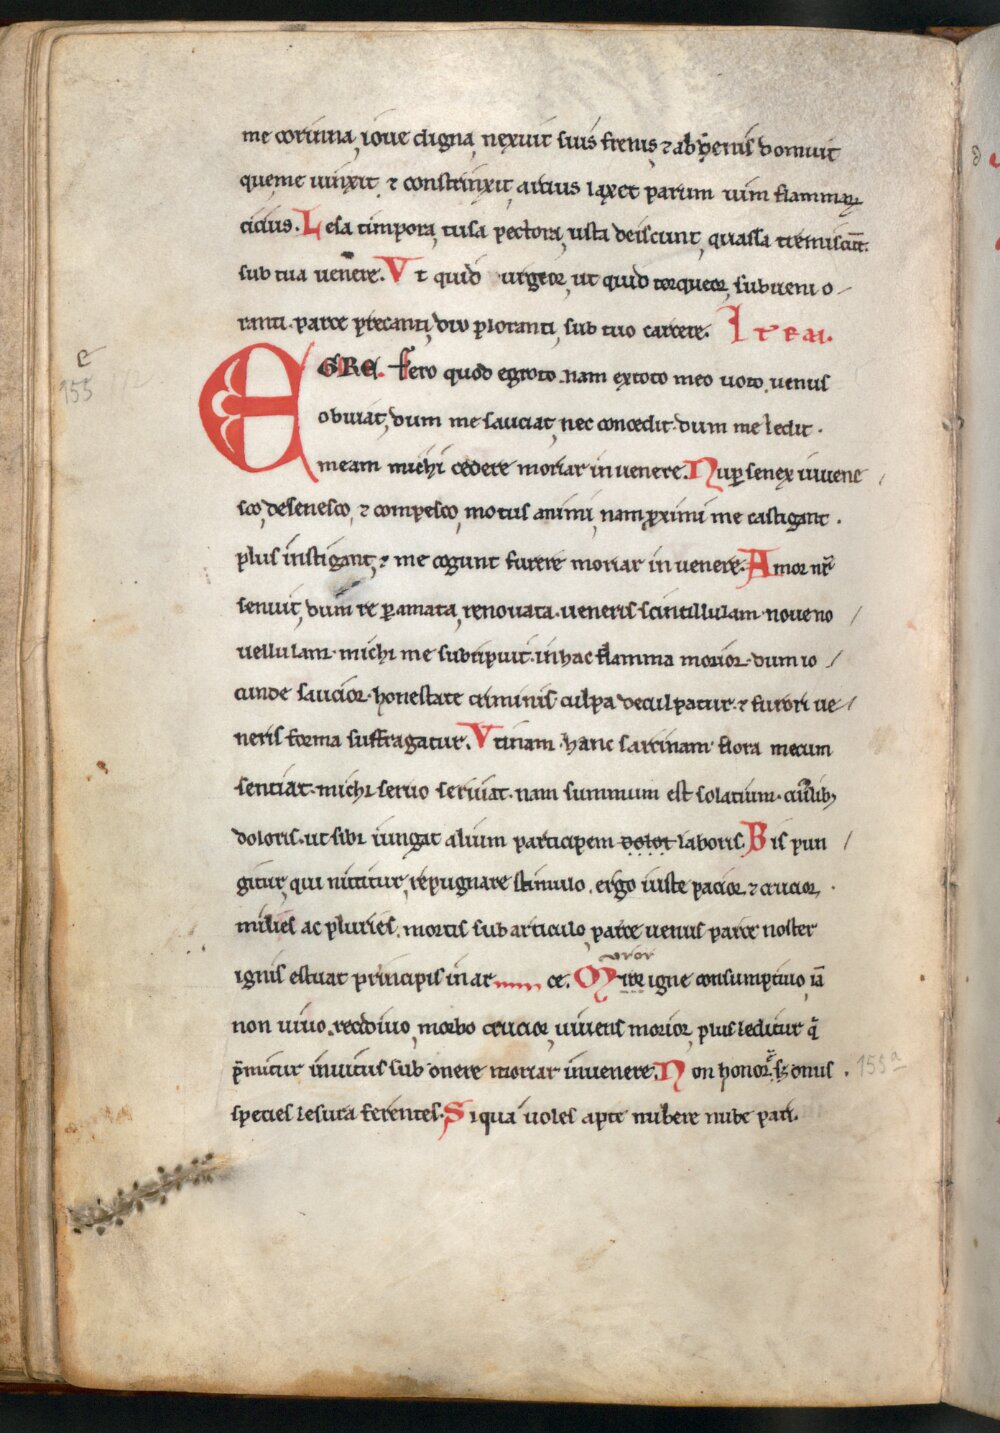 me corinna, ioue digna, nexuit suis frenis, ⁊ abhenis domuit
que me uinxit ⁊ constrinxit, arcius laxet parum uim flammaꝝ
cicius. Lesa timpora, tusa pectora, usta deiscunt, quassa tremiscūt.
sub tua uenere. Vt quid urgeor, ut quid torqueor, subueni o-
ranti. parce p̄recanti, diu ploranti, sub tuo carcere. Item.
e
155
EGRE. fero quod egroto. nam ex toto meo uoto. uenus
obuiat, dum me sauciat, nec concedit. dum me ledit.
meam michi cedere moriar in uenere. Nuꝑ senex iuuene
sco, desenesco, ⁊ compesco, motus animi, nam p̄ximi me castigant.
plus instigant, ⁊ me cogunt furere moriar in uenere. Amor nr̄
senuit, dum re ꝑamata, renouata. ueneris scintillulam noue no
uellulam. michi me subripuit. in hac flamma morior. dum io
cunde saucior. honestate criminis. culpa deculpatur. ⁊ furori ue
neris forma suffragatur. Vtinam. hanc sarcinam flora mecum
sentiat. michi seruo seruiat. nam summum est solatium. cuilib;
doloris. ut sibi iungat alium participem dolor laboris. Bis pun
gitur, qui nititur, repugnare stimulo. ergo iuste pacior ⁊ crucior.
milies ac pluries. mortis sub articulo, parce uenus parce noster
uror
ignis estuat principis in ar ce. Mire igne consumptiuo, iā
non uiuo. recidiuo, morbo crucior, uiuens morior, plus leditur q̄
p̄mitur inuitus sub onere moriar inuenere. Non honor. s; onus
155a
species lesura ferentes. Siqua uoles apte nubere nube pari.